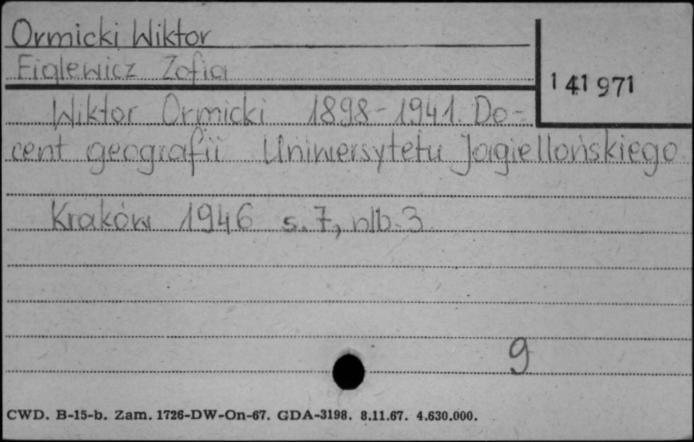 Ormicki Wiktor
Figlewicz Zofia
141971
Wiktor Ormicki 1898-1941. Do-
cent geografii Uniwersytetu Jagiellońskiego
Kraków 1946 s. 7, nlb. 3
9
CWD. B-15-b. Zam. 1726-DW-On-67. GDA-3198. 8.11.67. 4.630.000.